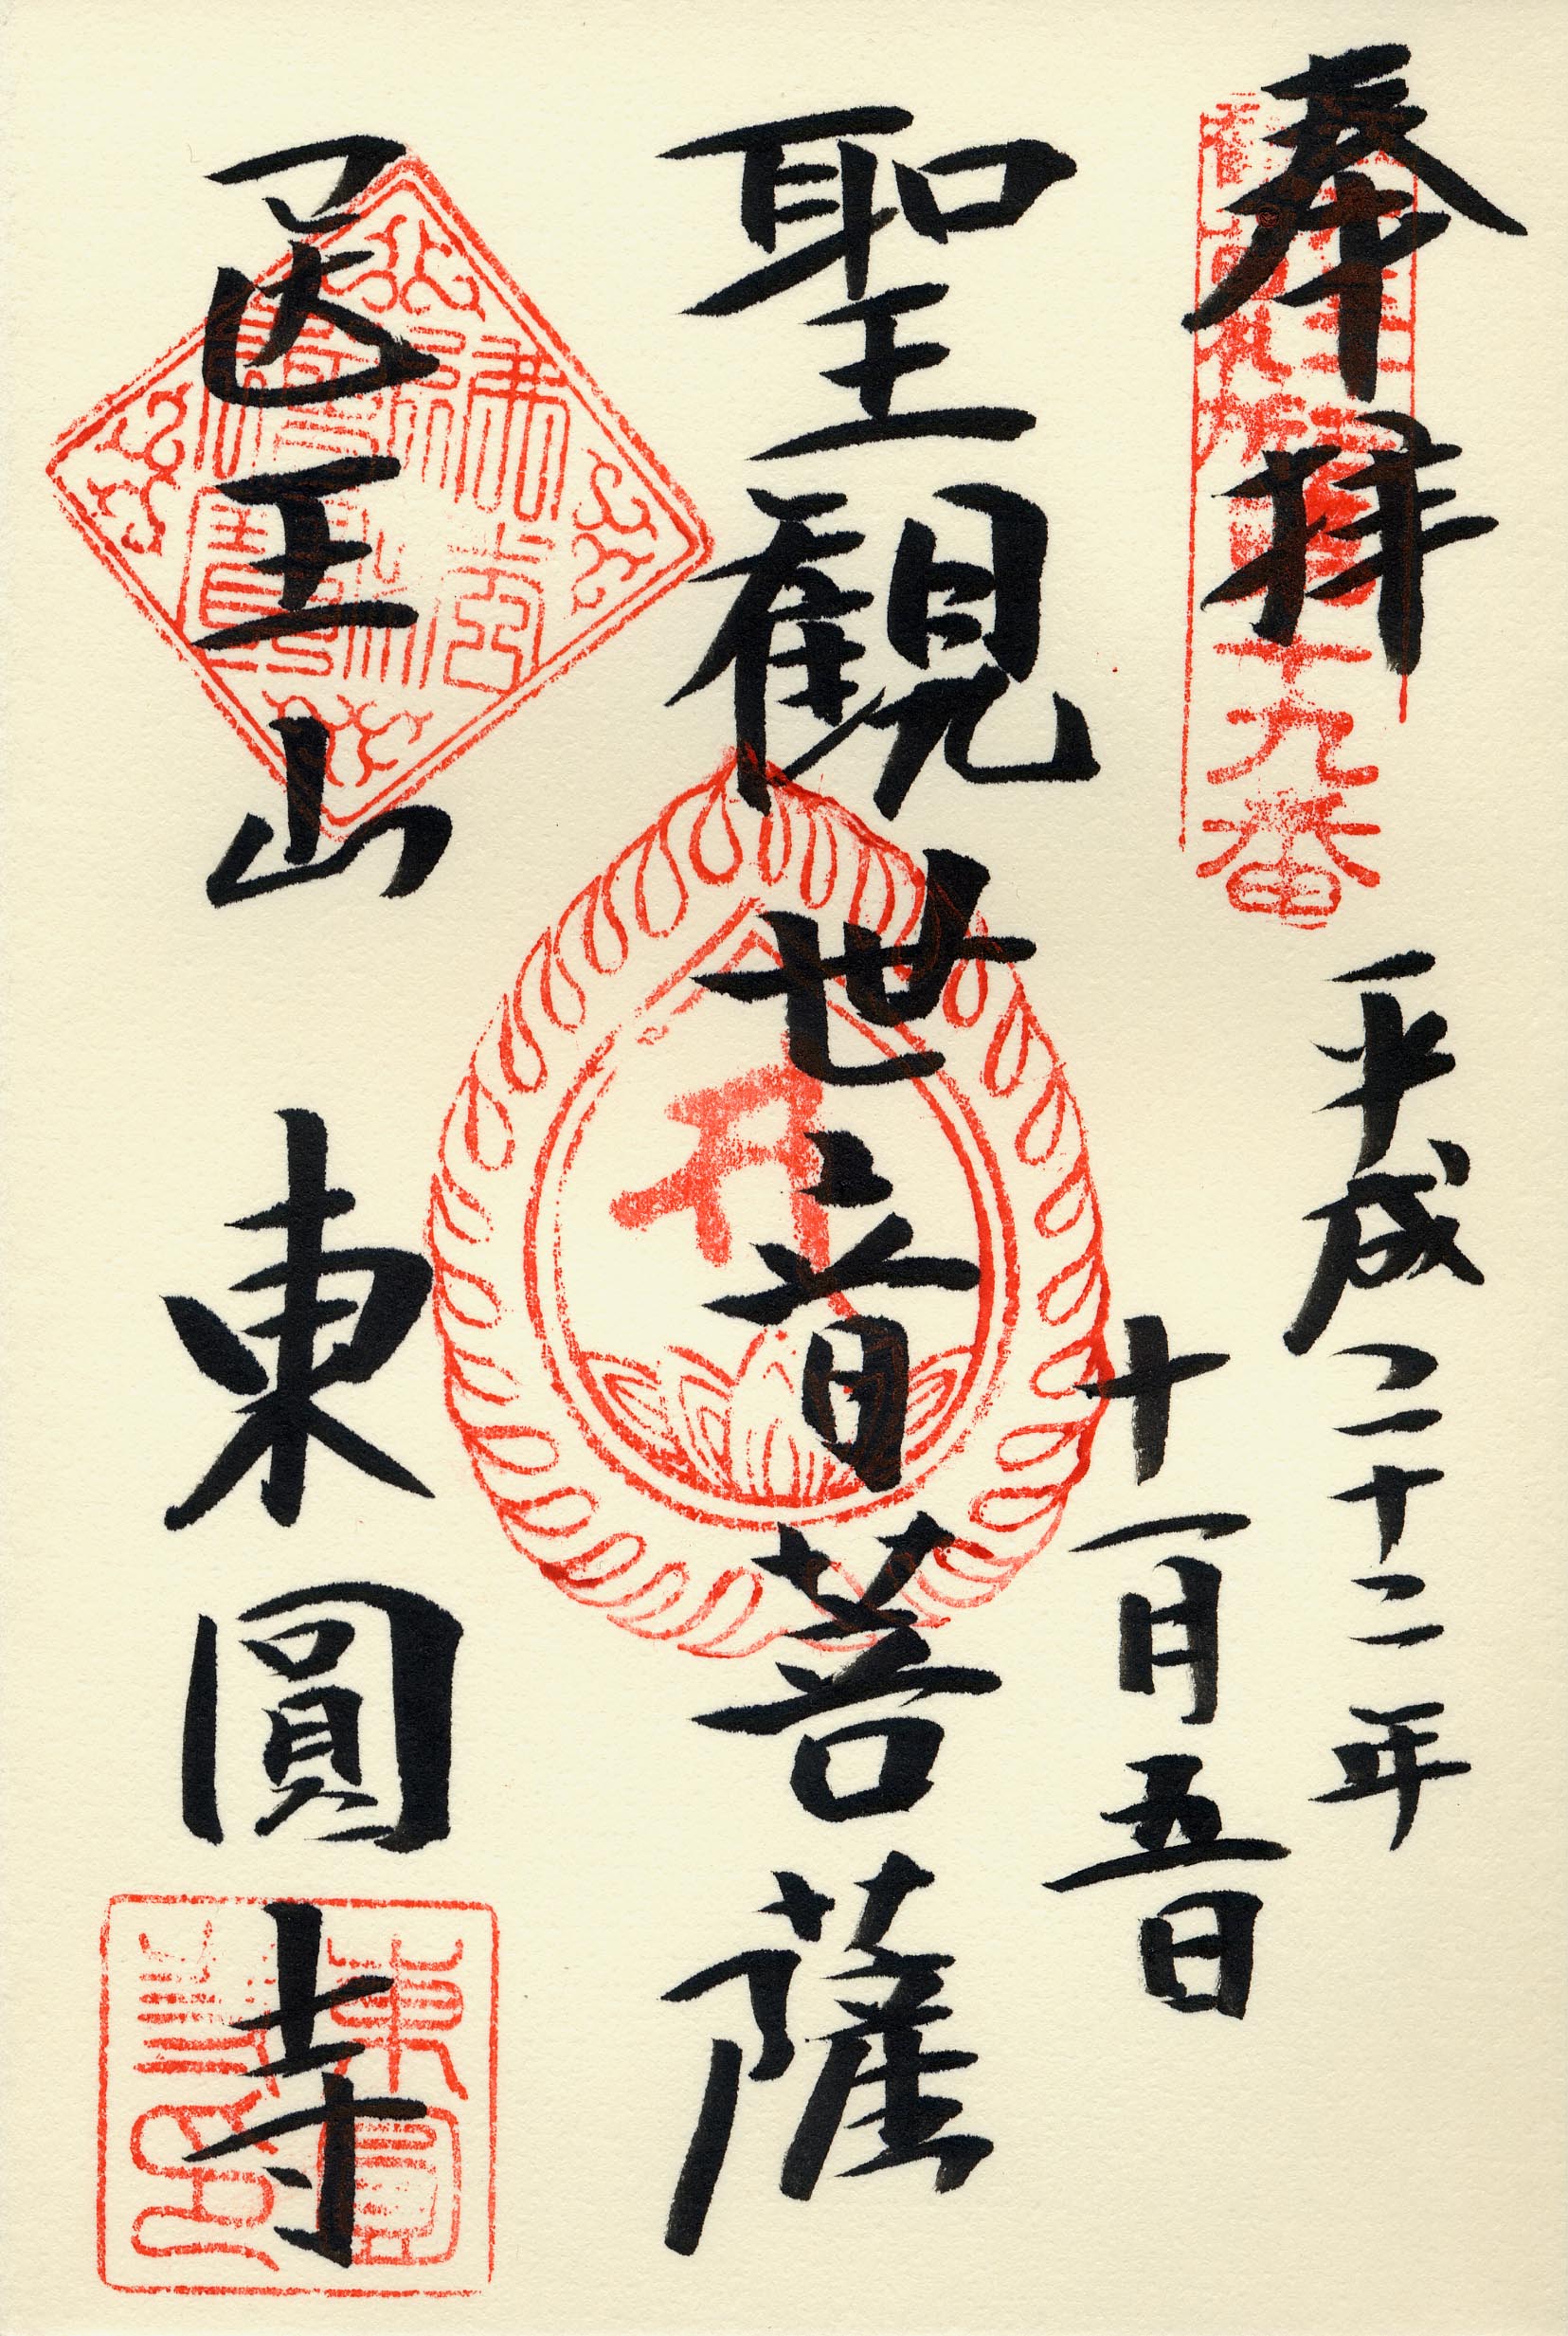 奉拝
平成二十二年
十一月五日
聖観世音菩薩
医王山 東圓寺
十九番
東圓